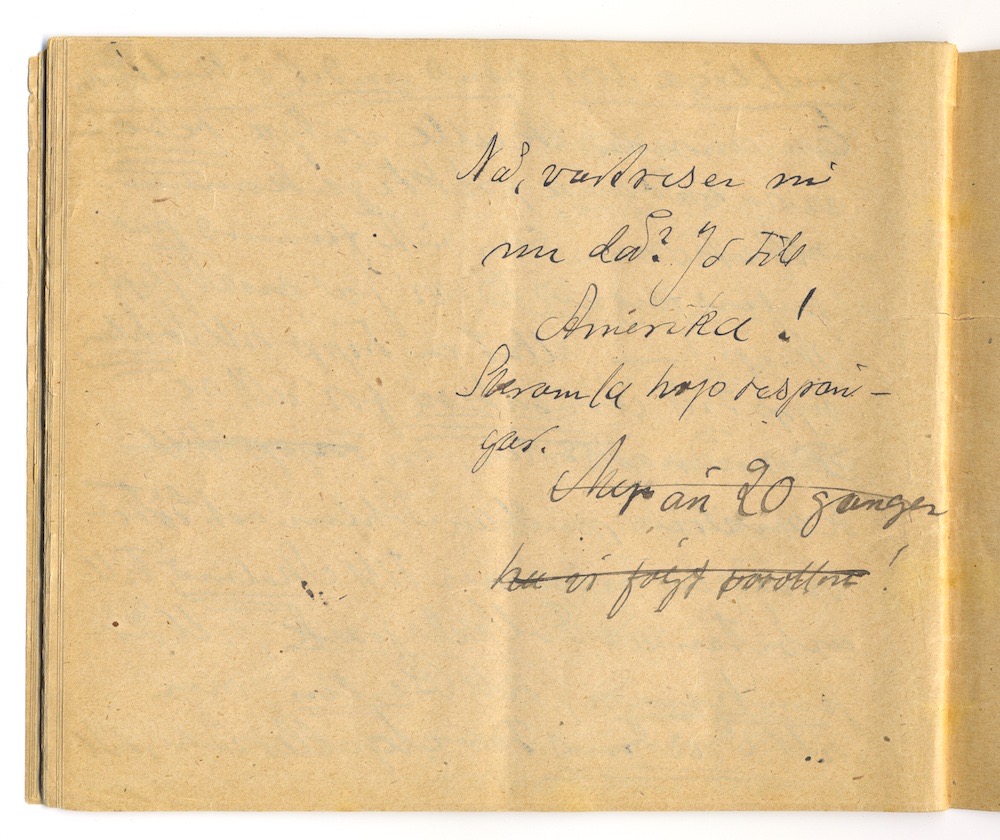 Nå, vart reser ni
nu då? Jo till
Amerika!
Skramla hop respän-
gar.
Mer än 20 gånger
ha vi följt parollen!